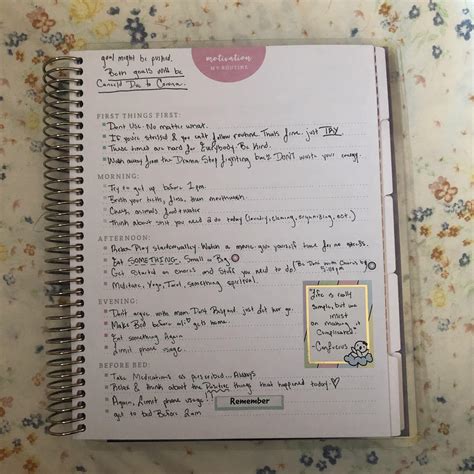 goal might be pushed.
Both goals will be
Canceled Due to Corona.
motivation
MY ROUTINE
FIRST THINGS FIRST:
Dont Use. No matter what.
If you're stressed & you cant follow routine. Thats fine. just TRY
These times are hard for Everybody. Be kind.
Walk away from the Drama. Stop fighting back DON'T waste your energy.
MORNING:
Try to get up before 1pm.
Brush your teeth, floss, mouthwash
Check animals food & water
Think about what you need 2 do today (laundry, cleaning, organizing, ect.)
AFTERNOON:
Relax. Play Watch a movie. give yourself time for no needs.
Eat SOMETHING. Small or Big
Get Started on chores and Stuff you need to do! (Be Done with Chores by
Meditate, Yoga, Tarot, something spiritual.
EVENING:
Dont argue with mom. Dont Respond. just let her go.
Make Bed before gets home.
Eat something Again
limit phone usage.
"life is really
simple, but we
insist
on making it
Complicated"
-Confucius
BEFORE BED:
Take Medications as perscribed... Always
Relax & think about the Positive things that happened today.
Again, limit phone usage!!
get to bed Before 2am
Remember